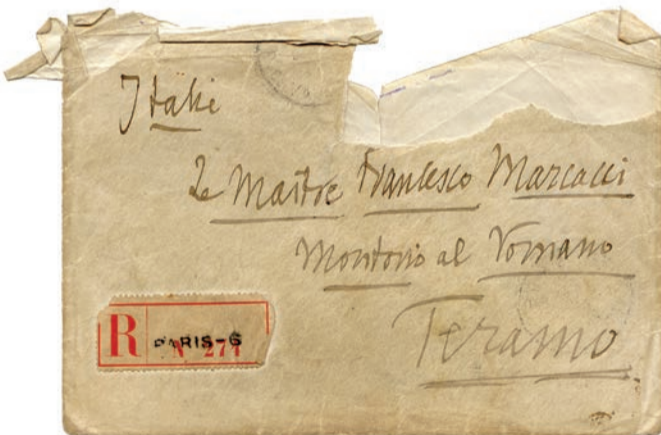 Italie
Le Maitre Francesco Marcacci
Montorio al Vomano
Teramo
R PARIS-6
N° 271